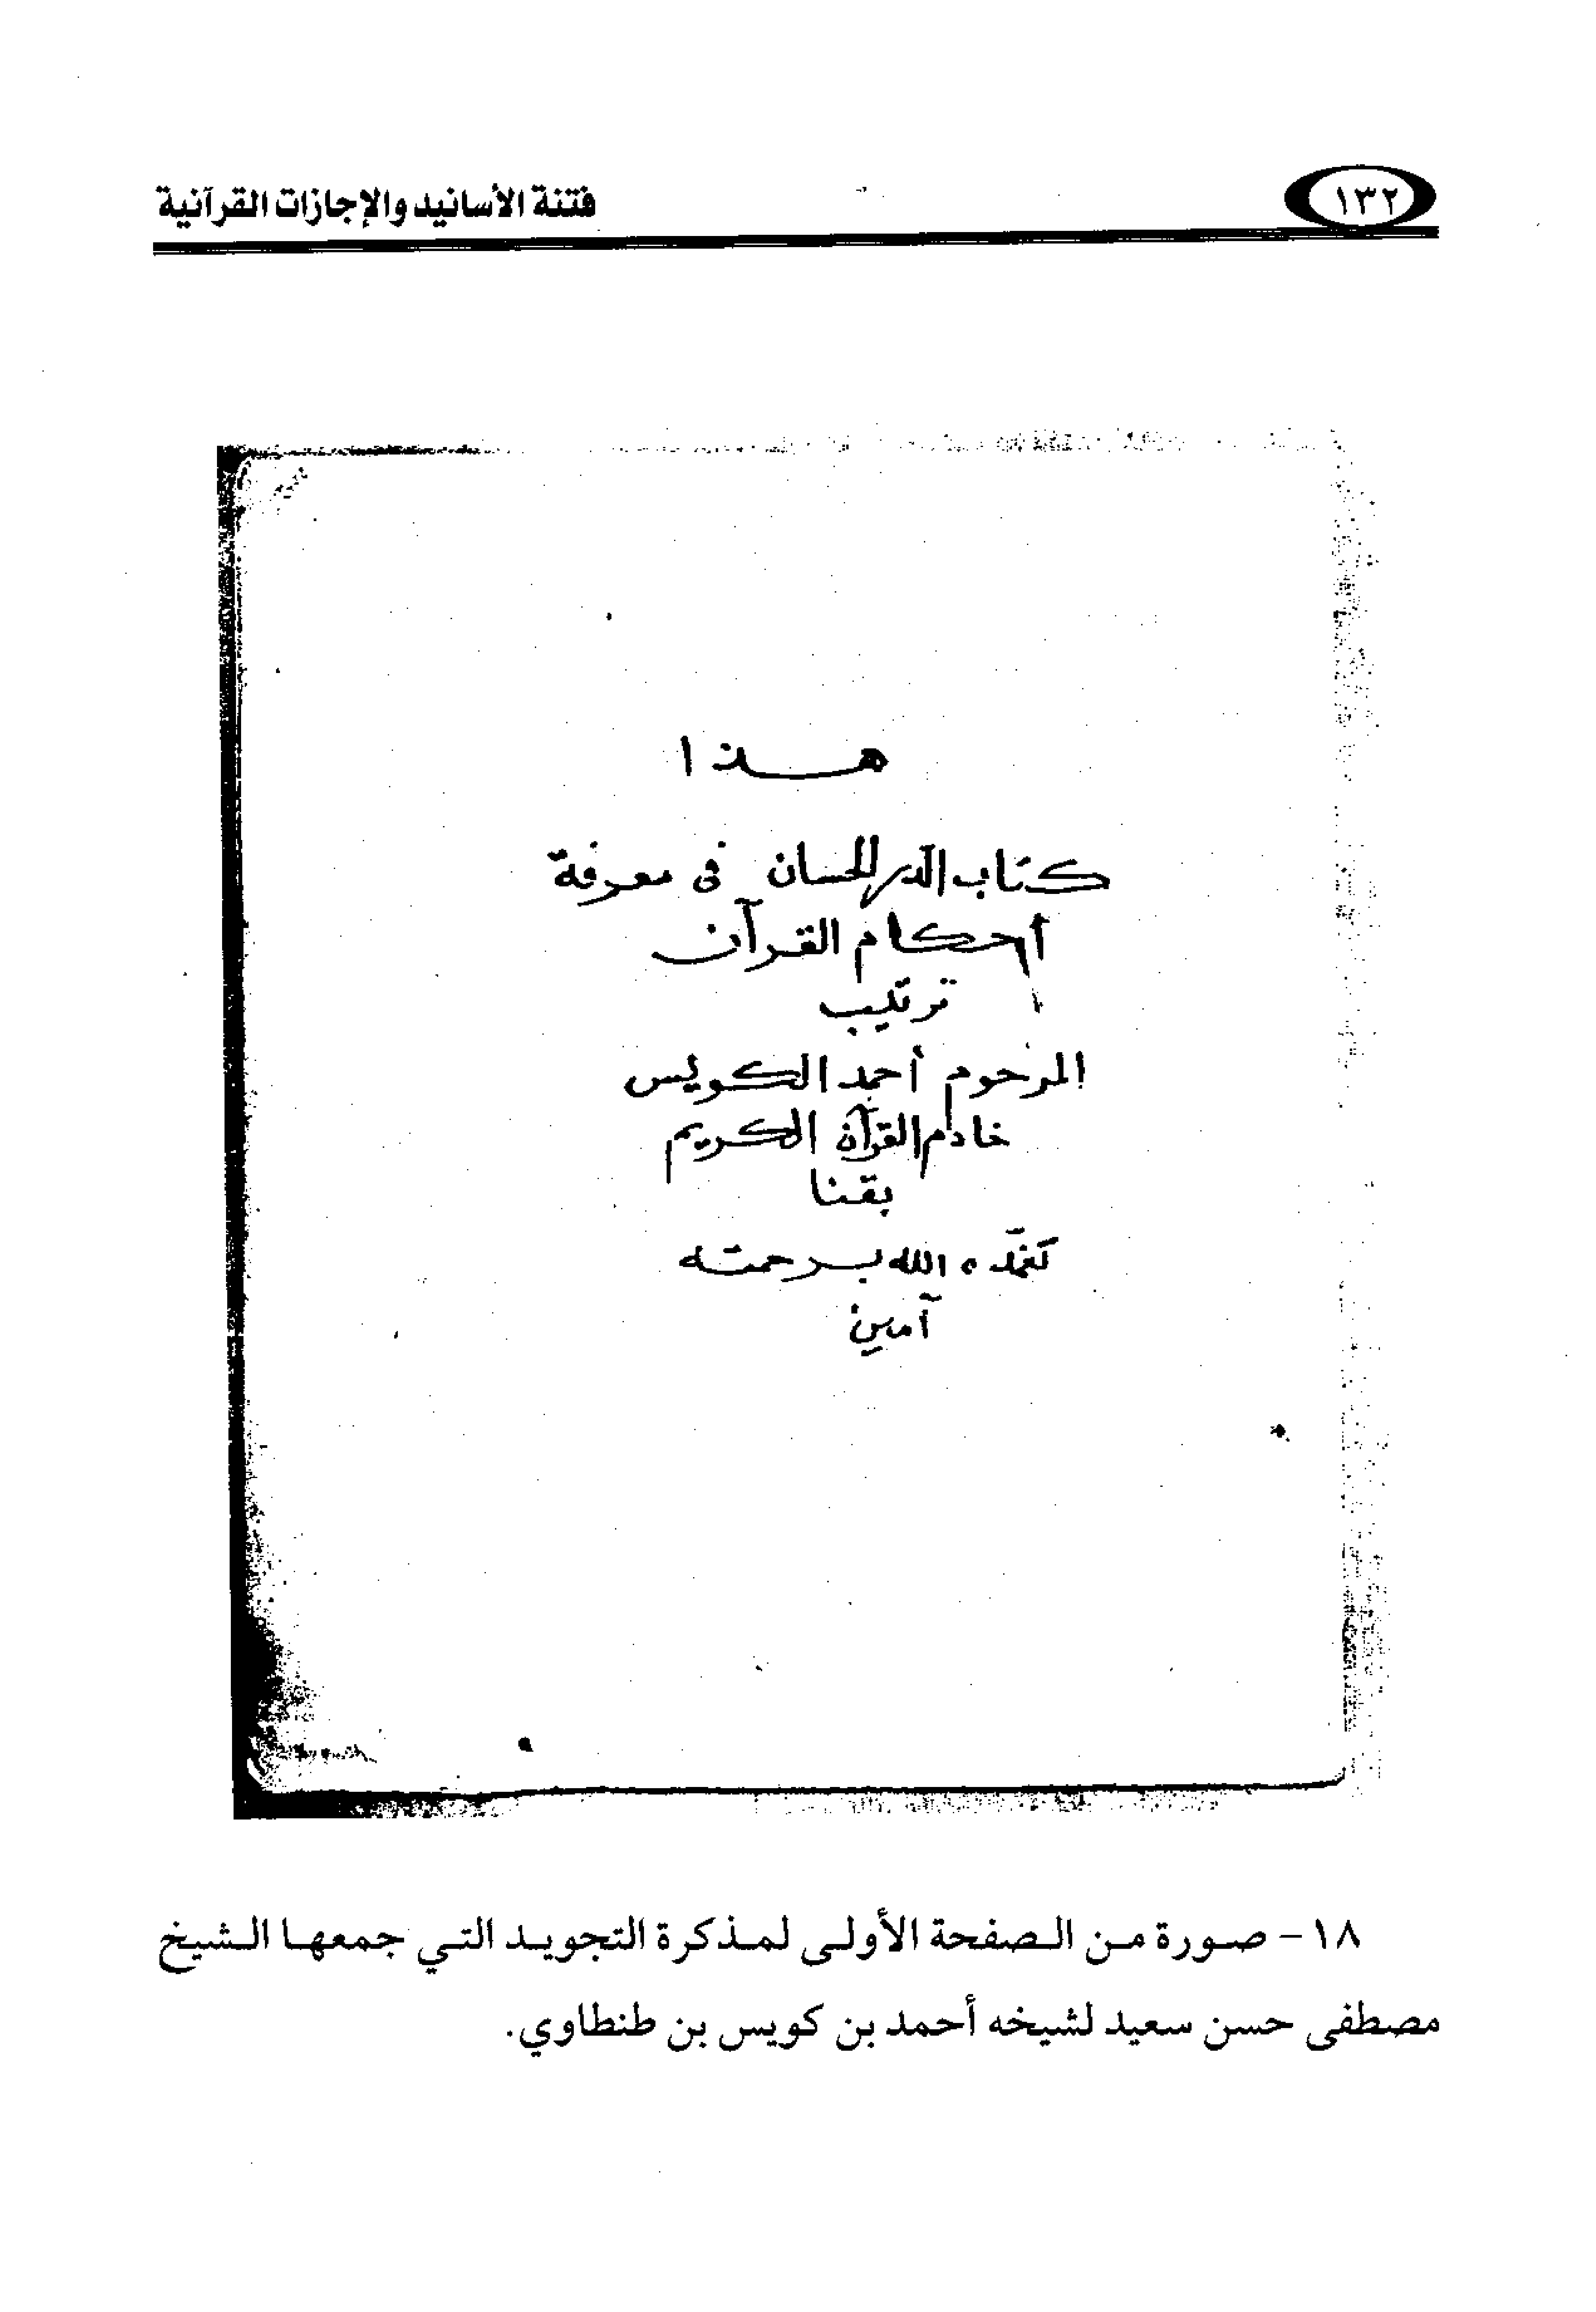 ١٣٢
فتنة الأسانيد والإجازات القرآنية
هذا
كتاب الدر الحسان فى معرفة
أحكام القرآن
ترتيب
المرحوم أحمد الكويس
خادم القرآن الكريم
بقنا
تغمده الله برحمته
آمين
١٨ - صورة من الصفحة الأولى لمذكرة التجويد التي جمعها الشيخ
مصطفى حسن سعيد لشيخه أحمد بن كويس بن طنطاوي.